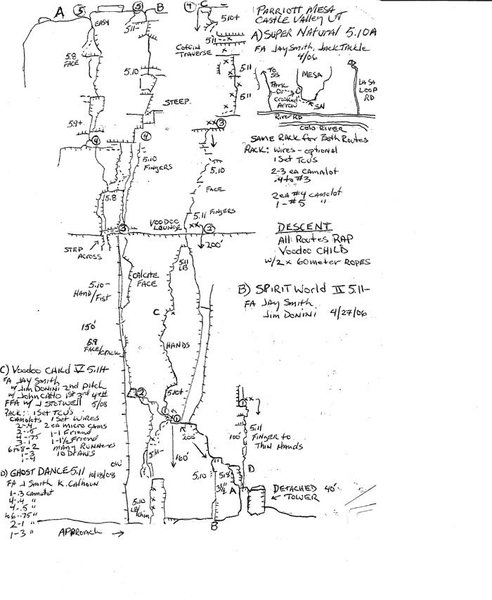 A
5
5
B
4
C
EASY
5.11-
5.10+
5.8
FACE
COFFIN
TRAVERSE
5.11-
5.10
STEEP
5.11
5.9+
4
4
3
5.10
FINGERS
5.10
FACE
5.8
5.11 FINGERS
VOODOO
LOUNGE
3
2
200'
STEP
ACROSS
5.11
LB
5.10-
HAND/
FIST
CALCITE
FACE
C
150'
HANDS
5.9
FACE/CRACK
5.10+
2
1
200'
5.11-
100'
OW
5.10
5.10
5.8
A
B
D
5.11
FINGER TO
THIN HANDS
100'
DETACHED 40'
TOWER
APPROACH
PARRIOTT MESA
CASTLE VALLEY UT
A) SUPER NATURAL 5.10A
FA JAY SMITH, JACK TACKLE
4/06
TO
MESA
LA SAL
LOOP
RD
SN
RIVER RD
COLO RIVER
SAME RACK FOR BOTH ROUTES
RACK: WIRES - OPTIONAL
1 SET TCUS
2-3 EA CAMALOT
.4 TO #3
2 EA #4 CAMALOT
1 - #5 "
DESCENT
ALL ROUTES RAP
VOODOO CHILD
W/ 2 x 60 METER ROPES
B) SPIRIT WORLD IV 5.11-
FA JAY SMITH
JIM DONINI 4/27/06
C) VOODOO CHILD V 5.11+
FA JAY SMITH
W/ JIM DONINI 2ND PITCH
W/ JOHN CATTO 1ST 3RD 4TH
FFA W/ J STOTWELL 5/08
RACK: 1 SET TCUS
CAMALOTS 1 SET WIRES
2 - .4 2 EA MICRO CAMS
2 - .5 1 - 1 FRIEND
4 - .75 1 - 1½ FRIEND
3 - 1 MANY RUNNERS
6 OR 8 - 2 10 DRAWS
1 - 3
1 - 4
D) GHOST DANCE 5.11 10/13/08
FA J SMITH K. CALHOUN
1 - .3 CAMALOT
4 - .4 "
4 - .5 "
6 - .75 "
2 - 1 "
1 - 3 "